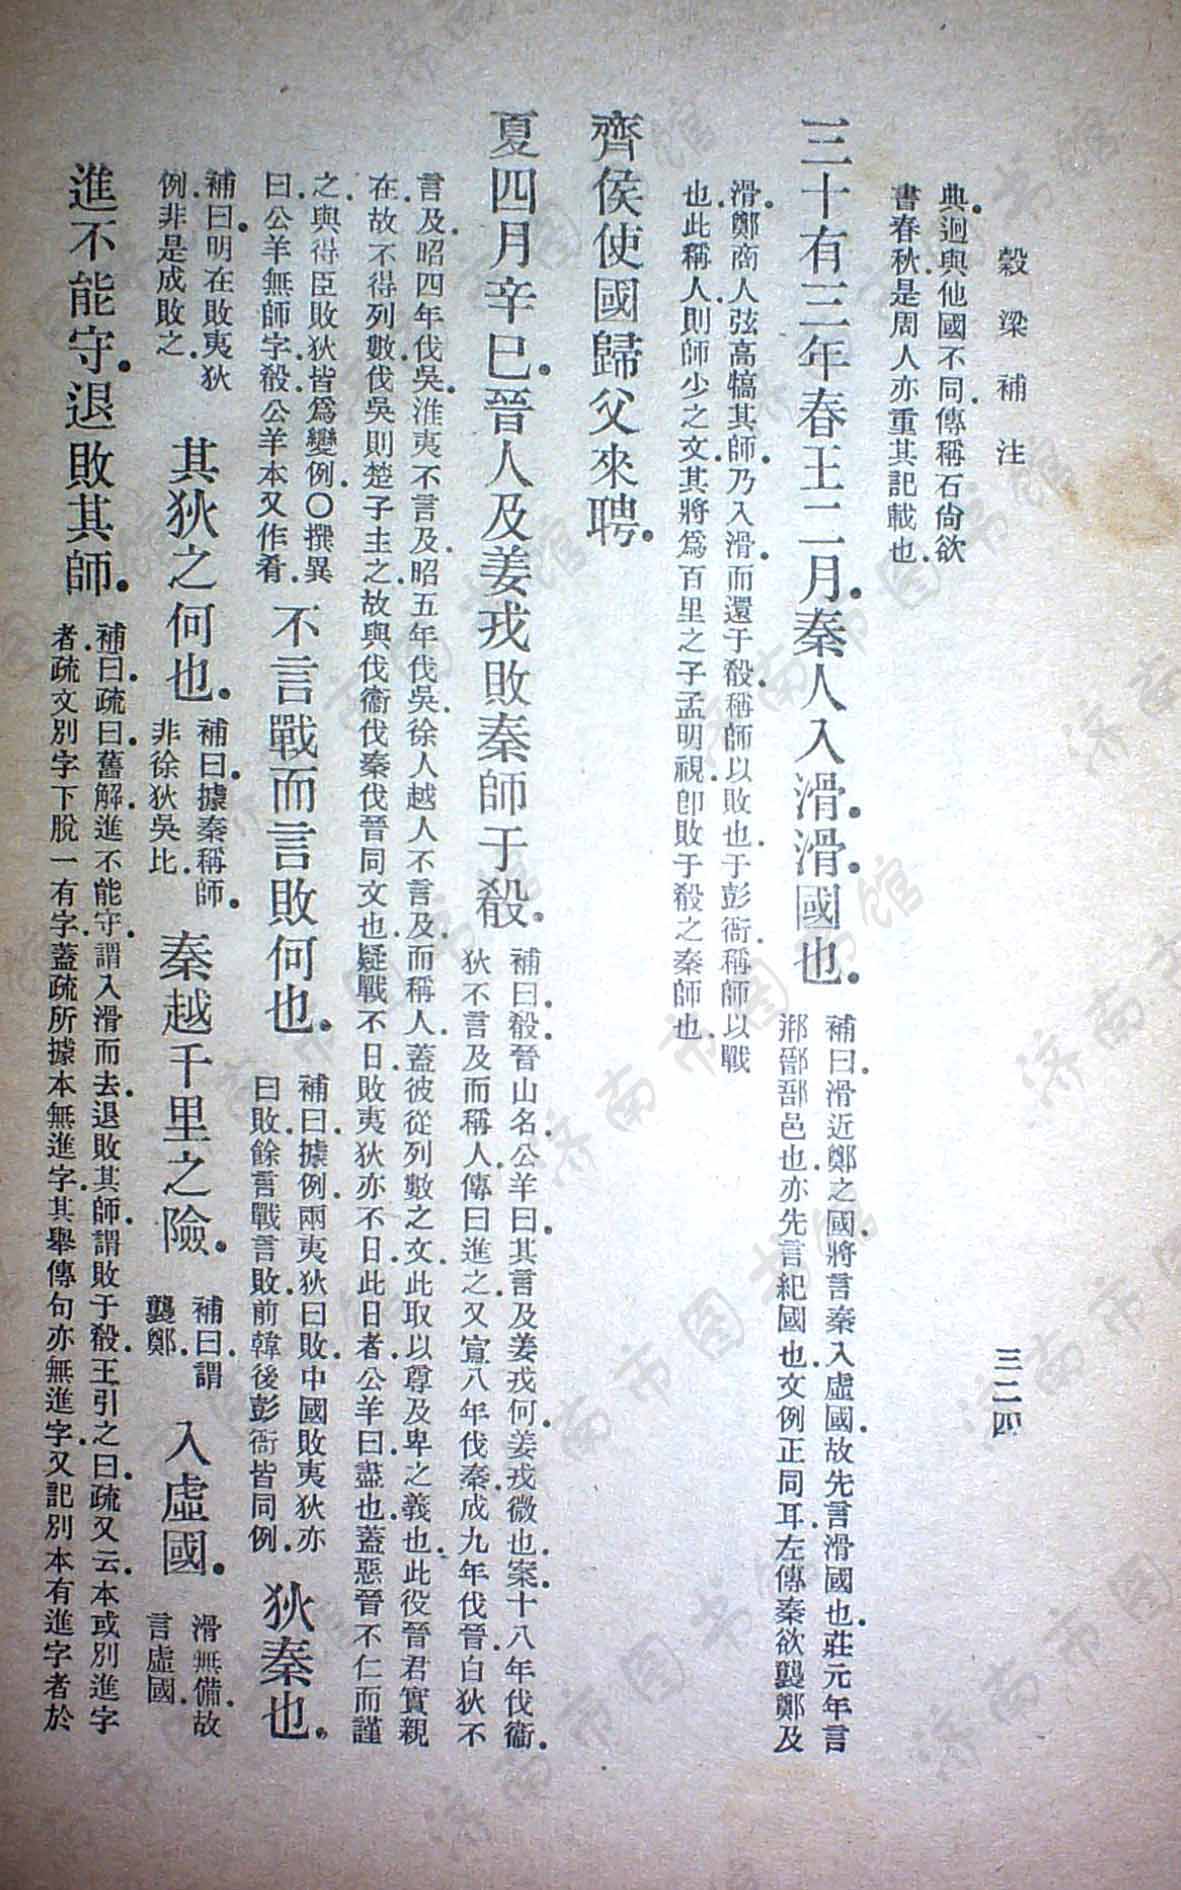 穀梁補注
三二四
典.迥與他國不同.傳稱石尙欲
書春秋.是周人亦重其記載也.
三十有三年春王二月.秦人入滑.滑.國也.
補曰.滑近鄭之國.將言秦入虛國.故先言滑國也.莊元年言
郱鄑郚邑也.亦先言紀國也.文例正同耳.左傳秦欲襲鄭.及
滑.鄭商人弦高犒其師.乃入滑.而還于殽.稱師以敗也.于彭衙.稱師以戰
也.此稱人.則師少之文.其將爲百里之子孟明視.卽敗于殽之秦師也.
齊侯使國歸父來聘.
夏四月辛巳.晉人及姜戎敗秦師于殽.
補曰.殽.晉山名.公羊曰.其言及姜戎何.姜戎微也.案.十八年伐衞.
狄不言及而稱人.傳曰進之.又宣八年伐秦.成九年伐晉.白狄不
言及.昭四年伐吳.淮夷不言及.昭五年伐吳.徐人越人不言及而稱人.蓋彼從列數之文.此取以尊及卑之義也.此役晉君實親
在.故不得列數.伐吳則楚子主之.故與伐衞伐秦伐晉同文也.疑戰不日.敗夷狄亦不日.此日者.公羊曰.盡也.蓋惡晉不仁而謹
之.與得臣敗狄皆爲變例.〇撰異
曰.公羊無師字.殽.公羊本又作肴.
不言戰而言敗何也.
補曰.據例.兩夷狄曰敗.中國敗夷狄亦
曰敗.餘言戰言敗.前韓後彭衙皆同例.
狄秦也.
補曰.明在敗夷狄
例.非是成敗之.
其狄之何也.
補曰.據秦稱師.
非徐狄吳比.
秦越千里之險.
補曰.謂
襲鄭.
入虛國.
滑無備.故
言虛國.
進不能守.退敗其師.
補曰.疏曰.舊解.進不能守.謂入滑而去.退敗其師.謂敗于殽.王引之曰.疏又云.本或別進字
者.疏文別字下脫一有字.蓋疏所據本無進字.其舉傳句亦無進字.又記別本有進字者於